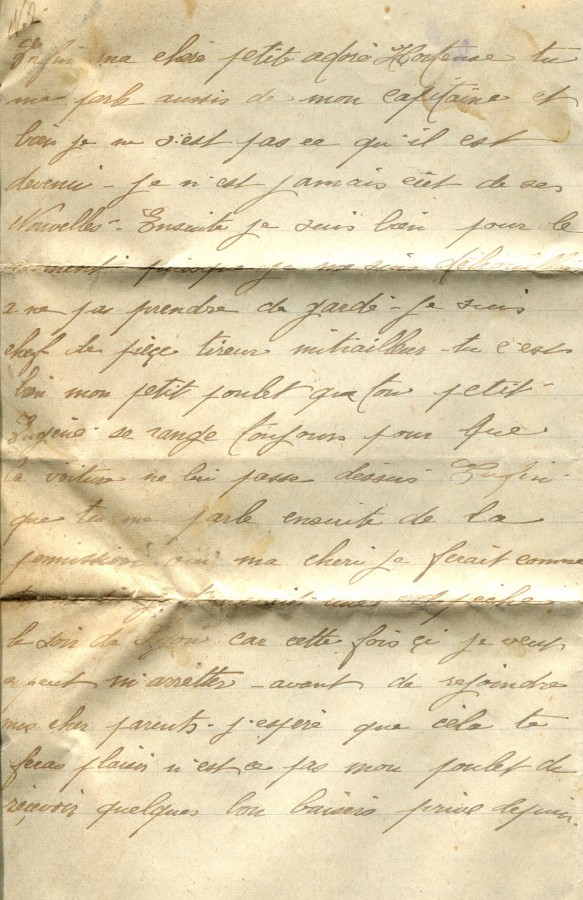 N2
Enfin ma chère petite adoré Hortense tu
me parle aussis de mon capitaine et
bien je ne s'est pas ce qu'il est
devenu - je n'est jamais eût de ses
Nouvelles - Ensuite je suis bien pour le
moment puisque je me suis
a ne pas prendre de garde - je suis
chef de pièçe tireur mitrailleur - tu c'est
bien mon petit poulet que ton petit
Eugène se range toujours pour que
la voiture ne lui passe dessus Enfin
que tu me parle ensuite de la
permission oui ma cheri je ferait comme
une depêche
le soir de Lyon car cette fois çi je veut
m'arretter - avant de rejoindre
mes cher parents - j'espère que cela te
feras plaisir n'est ce pas mon poulet de
reçevoir quelques bon baisers prise